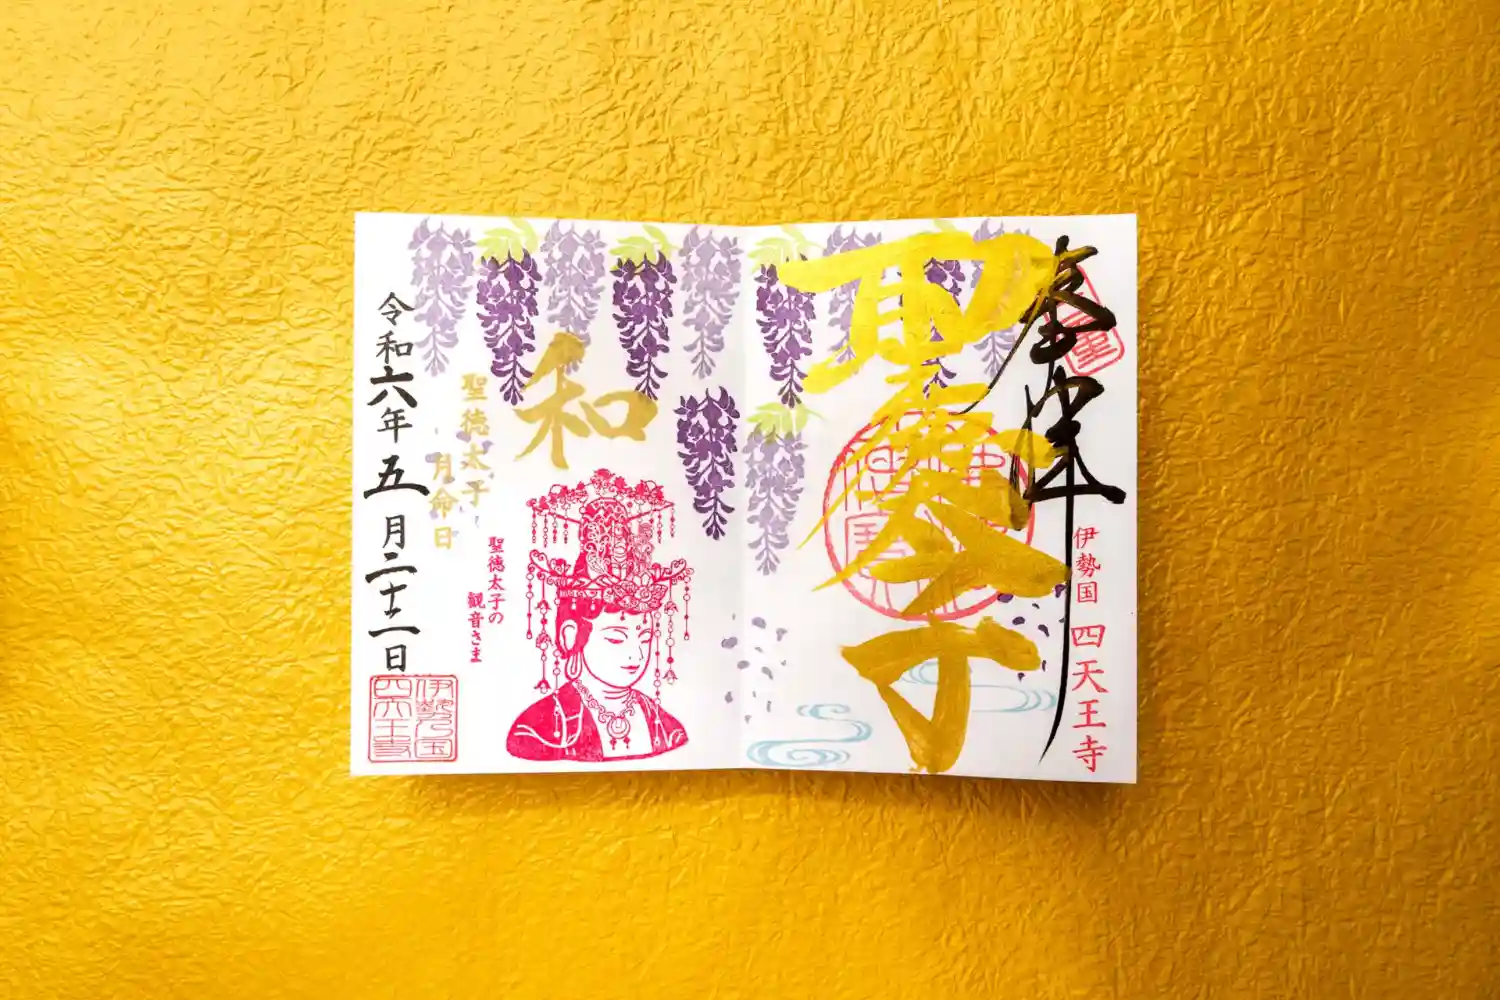 奉拝
伊勢国 四天王寺
聖徳太子
和
聖徳太子
月命日
聖徳太子の
観音さま
令和六年五月二十二日
伊勢国
四天王寺